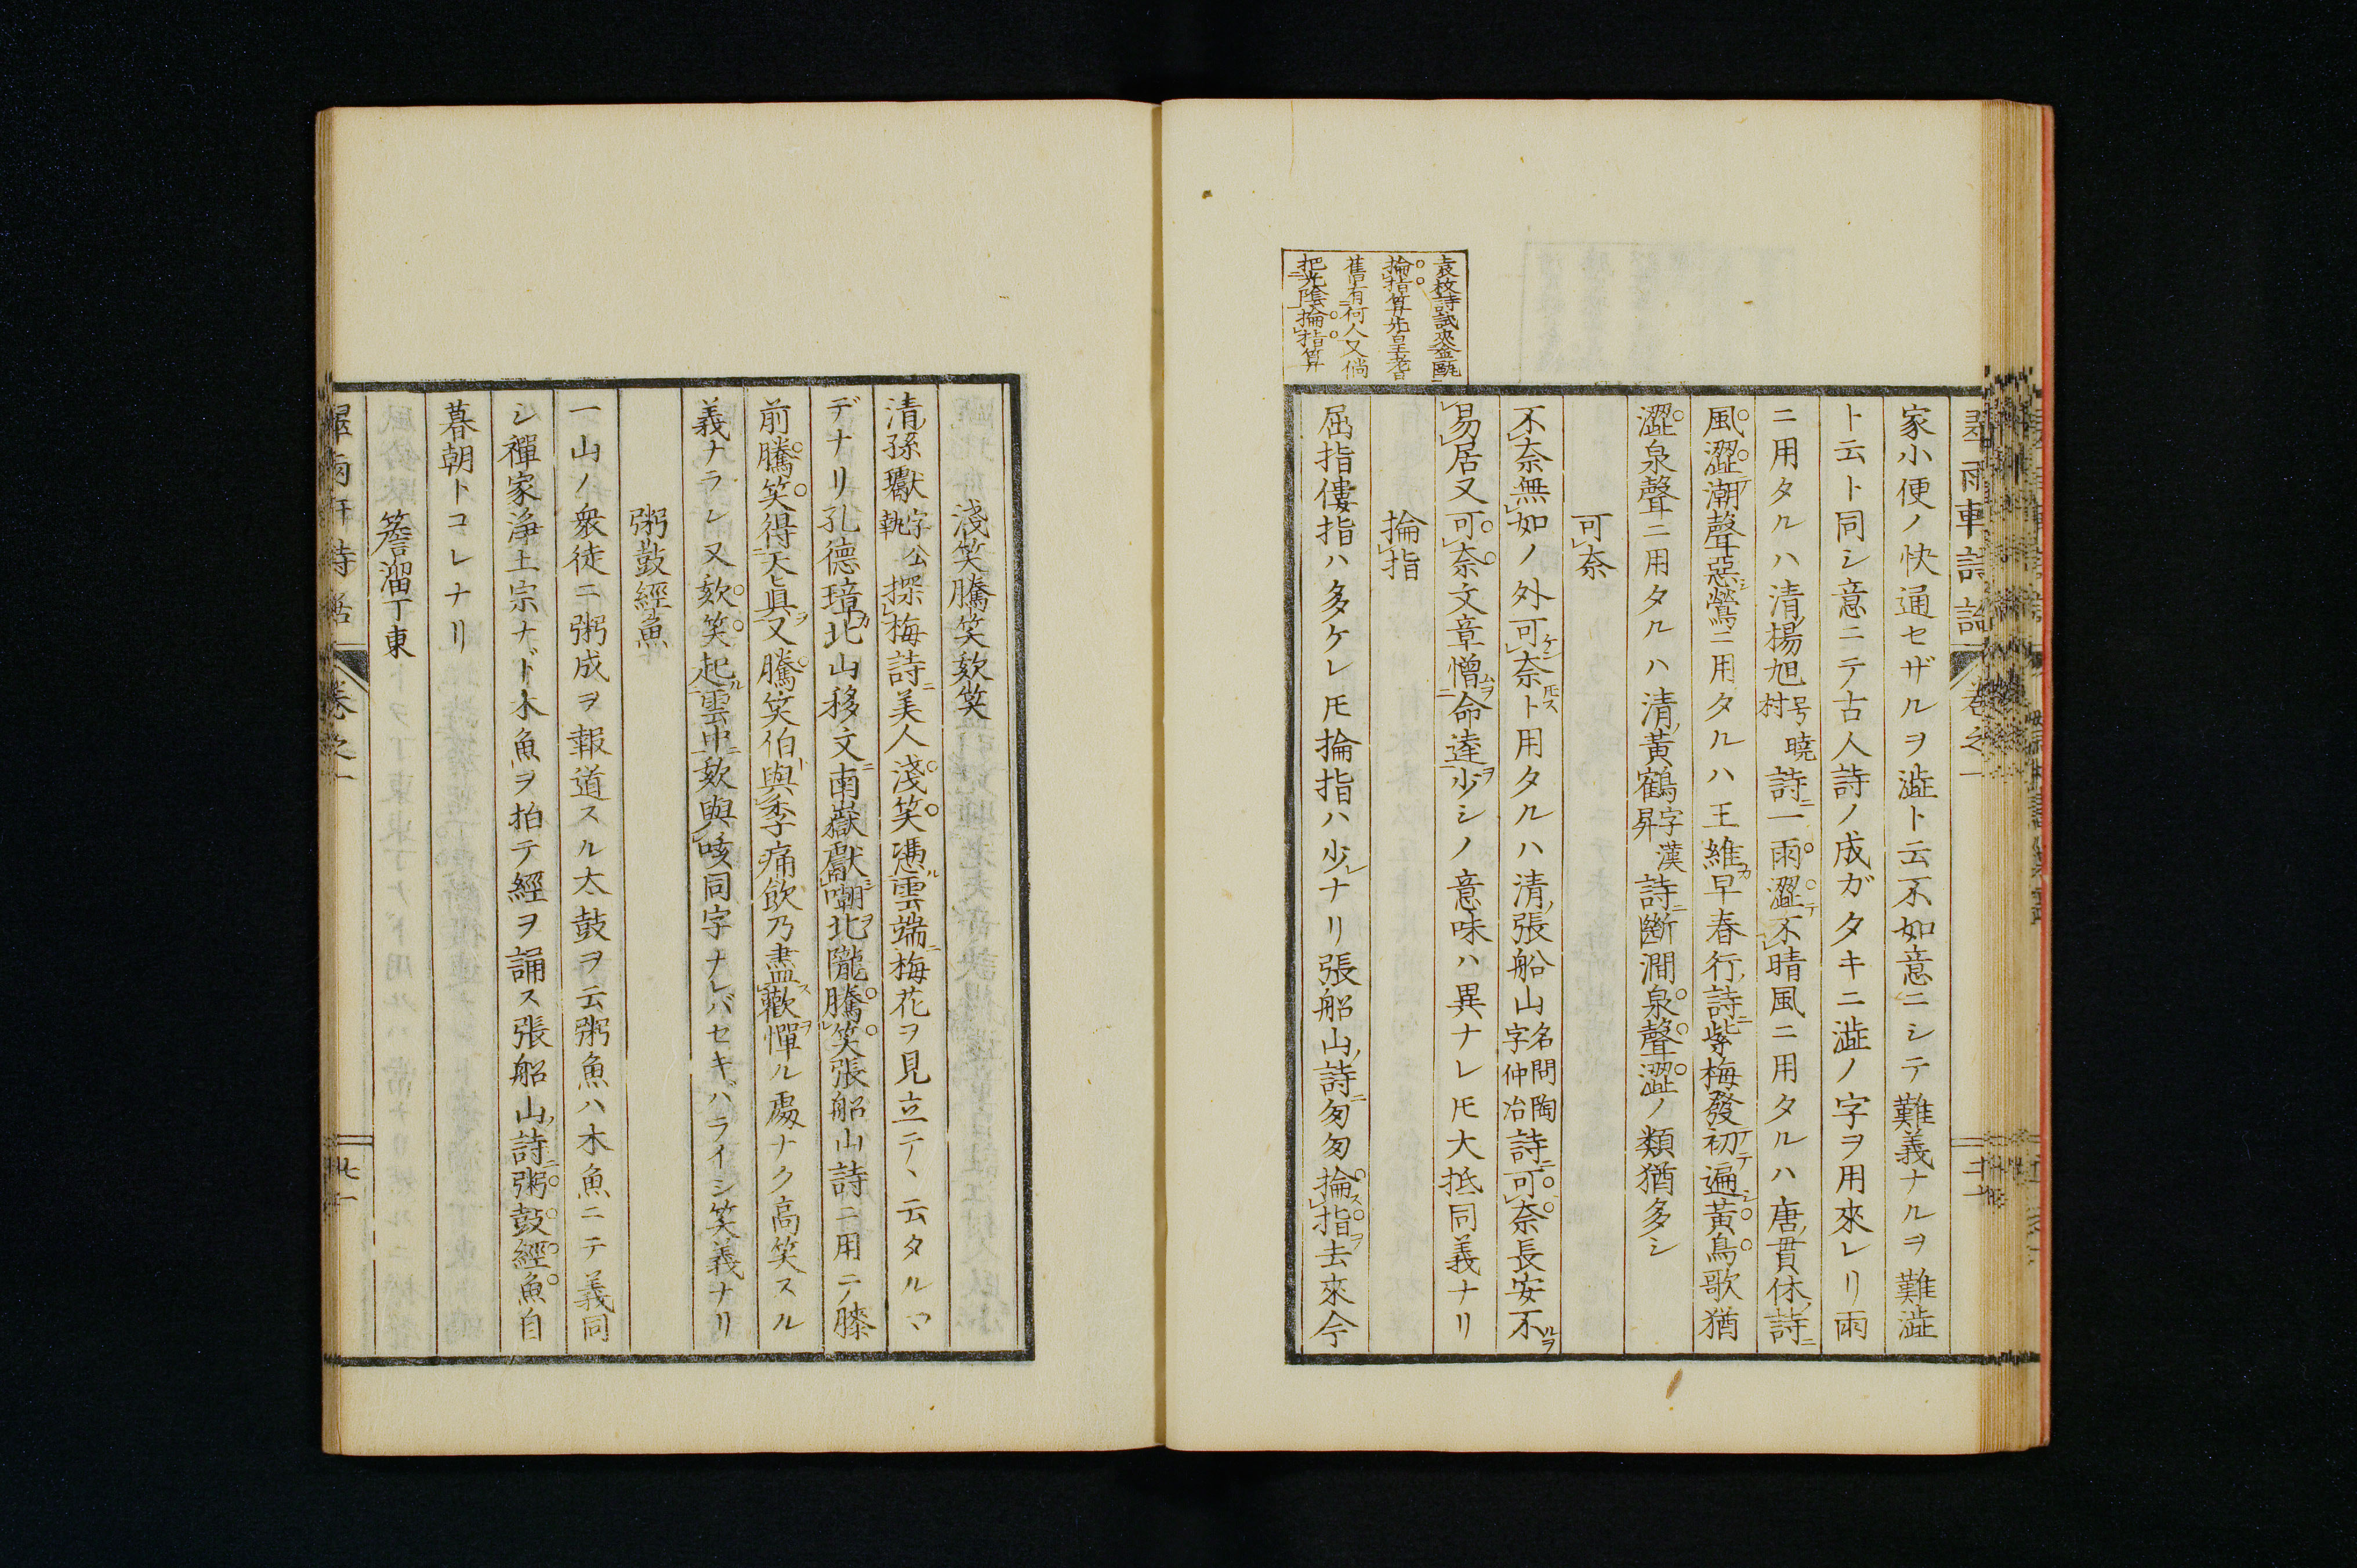 袁枚詩試來金甌
掄指算先皇耆
舊有何人又倘
把光陰掄指算
家小便ノ快通セザルヲ澁ト云不如意ニシテ難義ナルヲ難澁
ト云ト同シ意ニテ古人詩ノ成ガタキニ澁ノ字ヲ用來レリ雨
ニ用タルハ清楊旭号曉村詩ニ一雨澀テ不晴風ニ用タルハ唐貫休詩ニ
風澀テ潮聲惡シ鶯ニ用タルハ王維カ早春行詩ニ紫梅發テ初テ遍シ黃鳥歌猶
澀泉聲ニ用タルハ清黃鶴字漢昇詩ニ斷澗泉聲澀ノ類猶多シ
可奈
不奈無如ノ外可ケンニ奈トモスト用タルハ清張船山名問陶字仲冶詩ニ可奈長安不ルヲ
易居又可奈文章憎ムヲ命達少シノ意味ハ異ナレ𪜈大抵同義ナリ
掄指
屈指僂指ハ多ケレ𪜈掄指ハ少ナリ張船山詩ニ匆匆掄ス指ヲ去來今
淺笑騰笑欬笑
清孫瓛字公執探梅詩ニ美人淺笑憑ル雲端ニ梅花ヲ見立テヽ云タルヿ
デナリ孔德璋カ北山移文ニ南嶽獻シ嘲ヲ北隴騰笑張船山詩ニ用テ膝
前騰笑得天眞ヲ又騰笑伯ト與季痛飮乃盡ス歡ヲ憚ル處ナク高笑スル
義ナラレ又欬笑起ル雲中ニ欬與咳同字ナレバセキバライシ笑義ナリ
粥鼓經魚
一山ノ衆徒ニ粥成ヲ報道スル太鼓ヲ云粥魚ハ木魚ニテ義同
シ禪家淨土宗ナド木魚ヲ拍テ經ヲ誦ス張船山詩ニ粥鼓經魚自
暮朝トコレナリ
簷溜丁東
卷之一